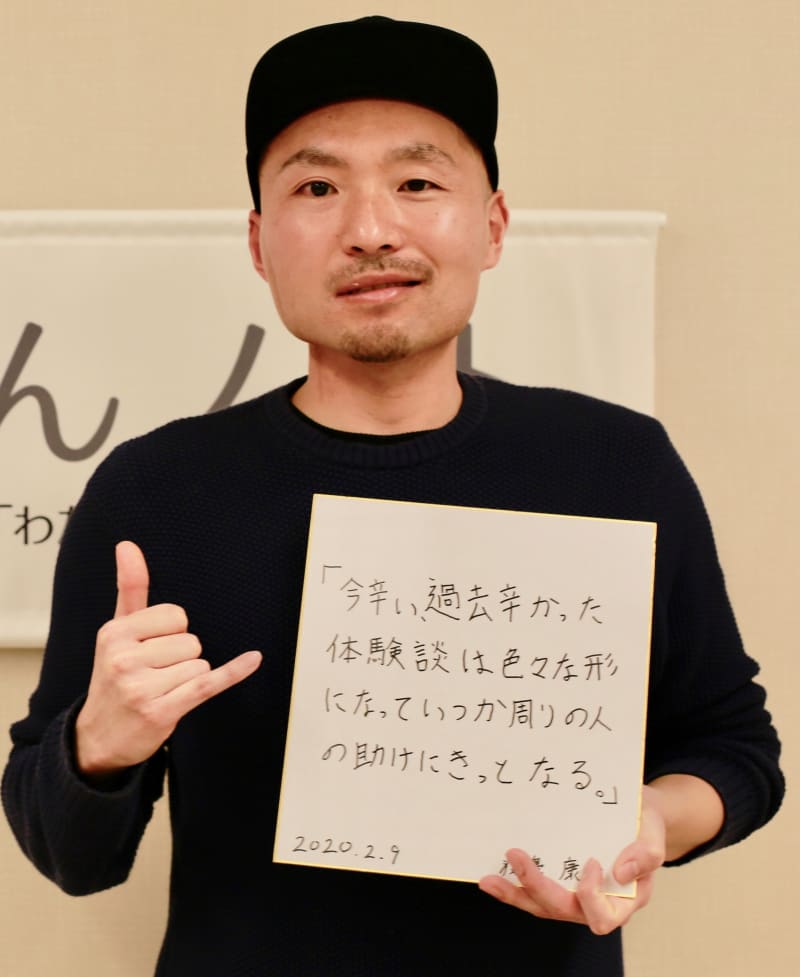 ん
「わ
「今辛い、過去辛かった
体験談は色々な形
になっていつか周りの人
の助けにきっとなる。」
2020.2.9
康